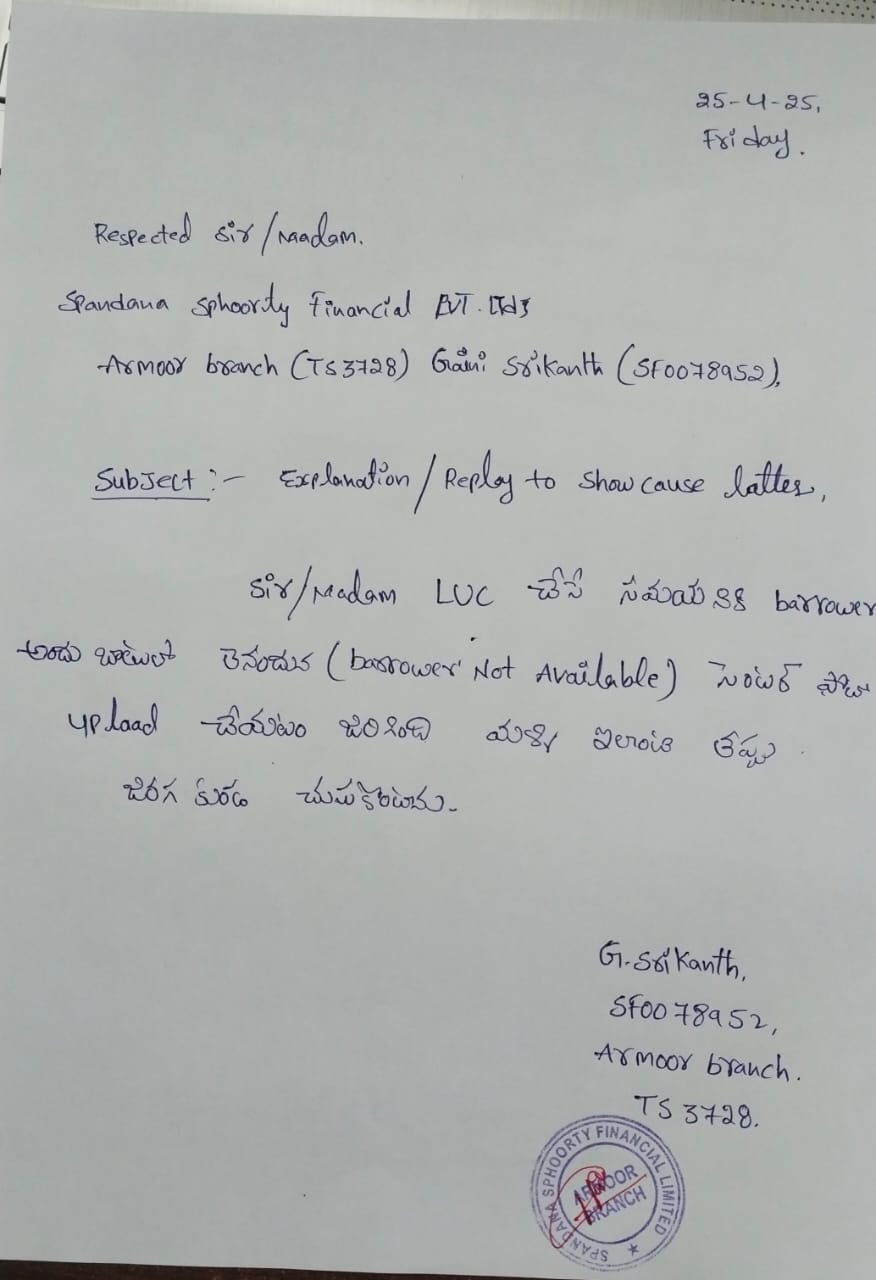 25-4-25,
Friday.
Respected Sir/Maadam.
Spandana Sphoority Financial PVT. LTd
Armoor branch (TS3728) Gaini Srikanth (SF0078952),
Subject :- Explanation/Reploy to Show cause latter,
Sir/Madam LUC చేసే సమయనికి barrower
అందు బాటులో లెనందున (barrower Not Available) సెంటర్ ఫోటో
uplaad చేయటం జరిగింది మళ్ళీ ఇలాంటి తప్పు
జరగ కుండ చుసుకొంటాము.
G. Srikanth,
SF0078952,
Armoor branch.
TS 3728.
SPANDANA SPHOORTY FINANCIAL LIMITED
ARMOOR
BRANCH